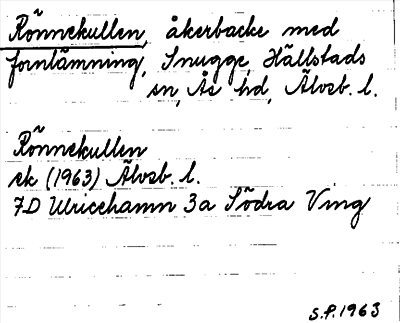 Rönnekullen, åkerbacke med
fornlämning, Snugge, Hällstads
sn, Ås hd, Älvsb. l.
Rönnekullen
ek (1963) Älvsb. l.
7D Ulricehamn 3a Södra Ving
S.P. 1963